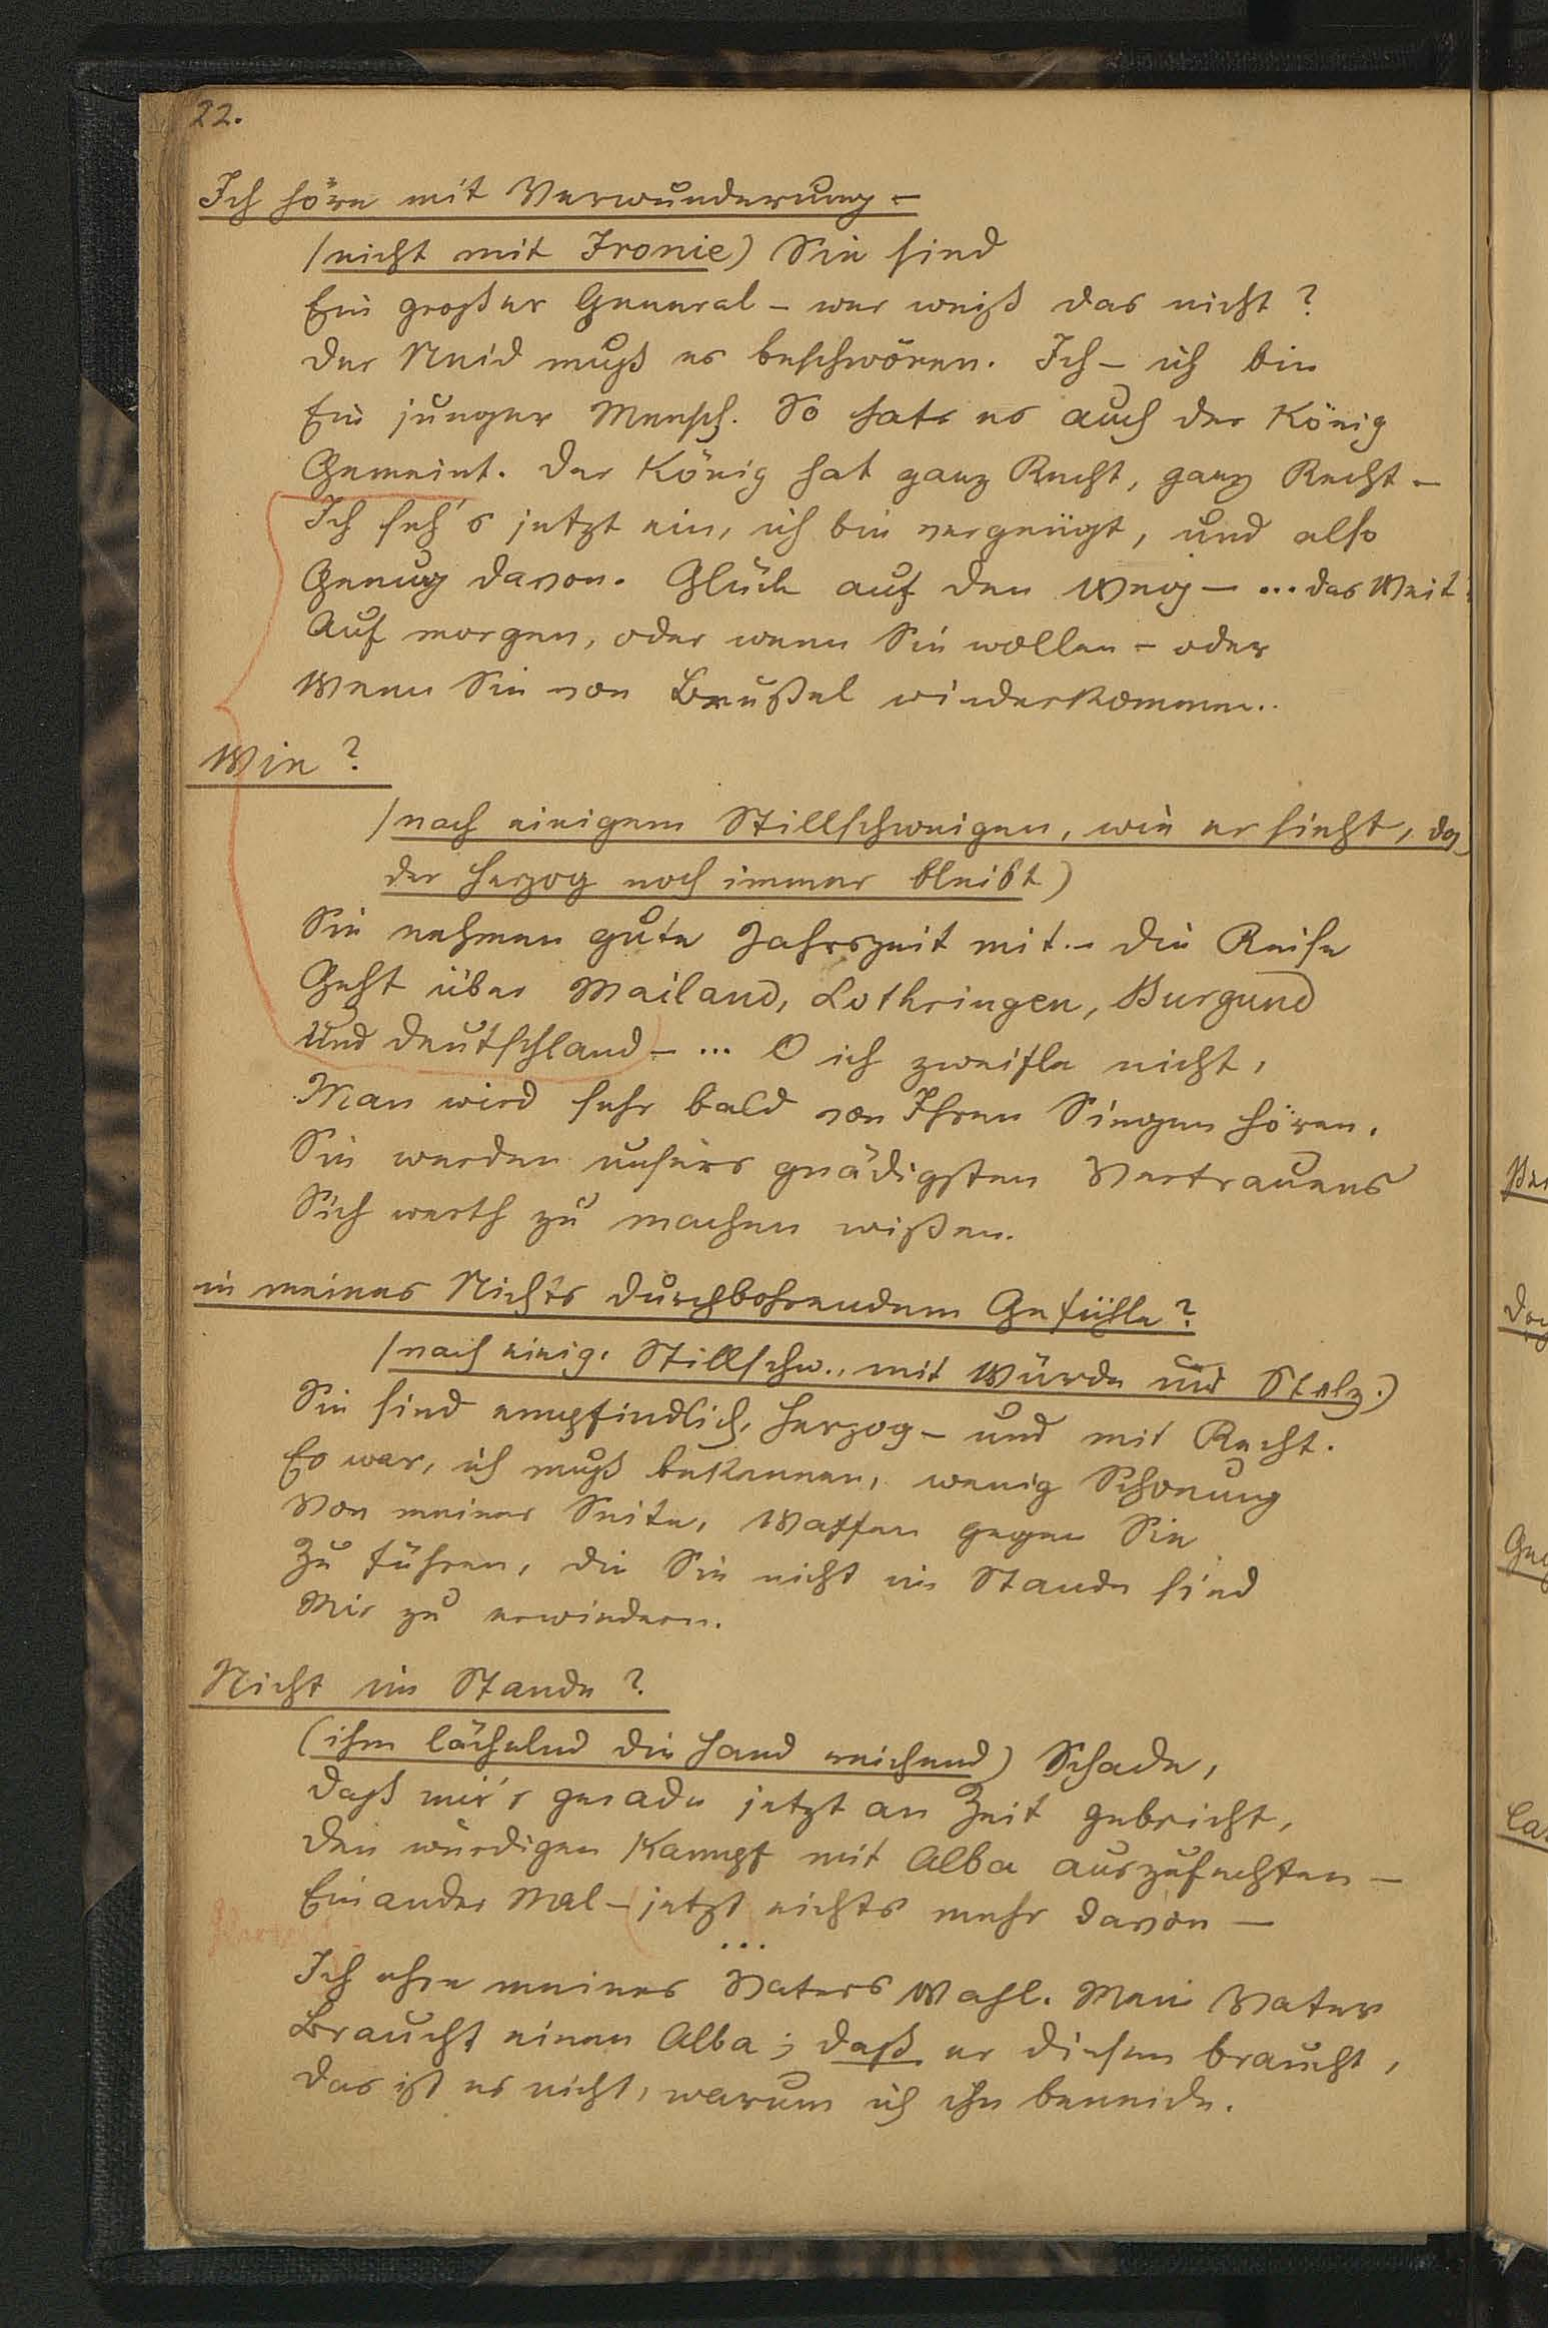 22.
Ich höre mit Verwunderung –
(nicht mit Ironie) Sie sind
Ein großer General – wer weiß das nicht?
Der Neid muß es beschwören. Ich – ich bin
Ein junger Mensch. So hats es auch der König
Gemeint. Der König hat ganz Recht, ganz Recht –
Ich seh's jetzt ein, ich bin vergnügt, und also
Genug davon. Glück auf den Weg – ... das Weit
Auf morgen, oder wenn Sie wollen – oder
Wenn Sie von Brüßel wiederkommen..
Wie?
(nach einigem Stillschweigen, wie er sieht, daß
der Herzog noch immer bleibt)
Sie nehmen gute Jahrszeit mit. – Die Reise
Geht über Mailand, Lothringen, Burgund
Und Deutschland – ... O ich zweifle nicht,
Man wird sehr bald von Ihren Siegen hören.
Sie werden unsers gnädigsten Vertrauens
Sich werth zu machen wißen.
in meines Nichts durchbohrendem Gefühle?
(nach einig. Stillschw., mit Würde und Stolz.)
Sie sind empfindlich, Herzog – und mit Recht.
Es war, ich muß bekennen, wenig Schonung
Von meiner Seite, Waffen gegen Sie
Zu führen, die Sie nicht im Stande sind
Mir zu erwiedern.
Nicht im Stande?
(ihm lächelnd die Hand reichend) Schade,
Daß mir's gerade jetzt an Zeit gebricht,
Den würdigen Kampf mit Alba auszufechten –
Ein ander Mal – jetzt nichts mehr davon –
...
Ich ehre meines Vaters Wahl. Mein Vater
Braucht einen Alba; daß er diesen braucht,
Das ist es nicht, warum ich ihn beneide.